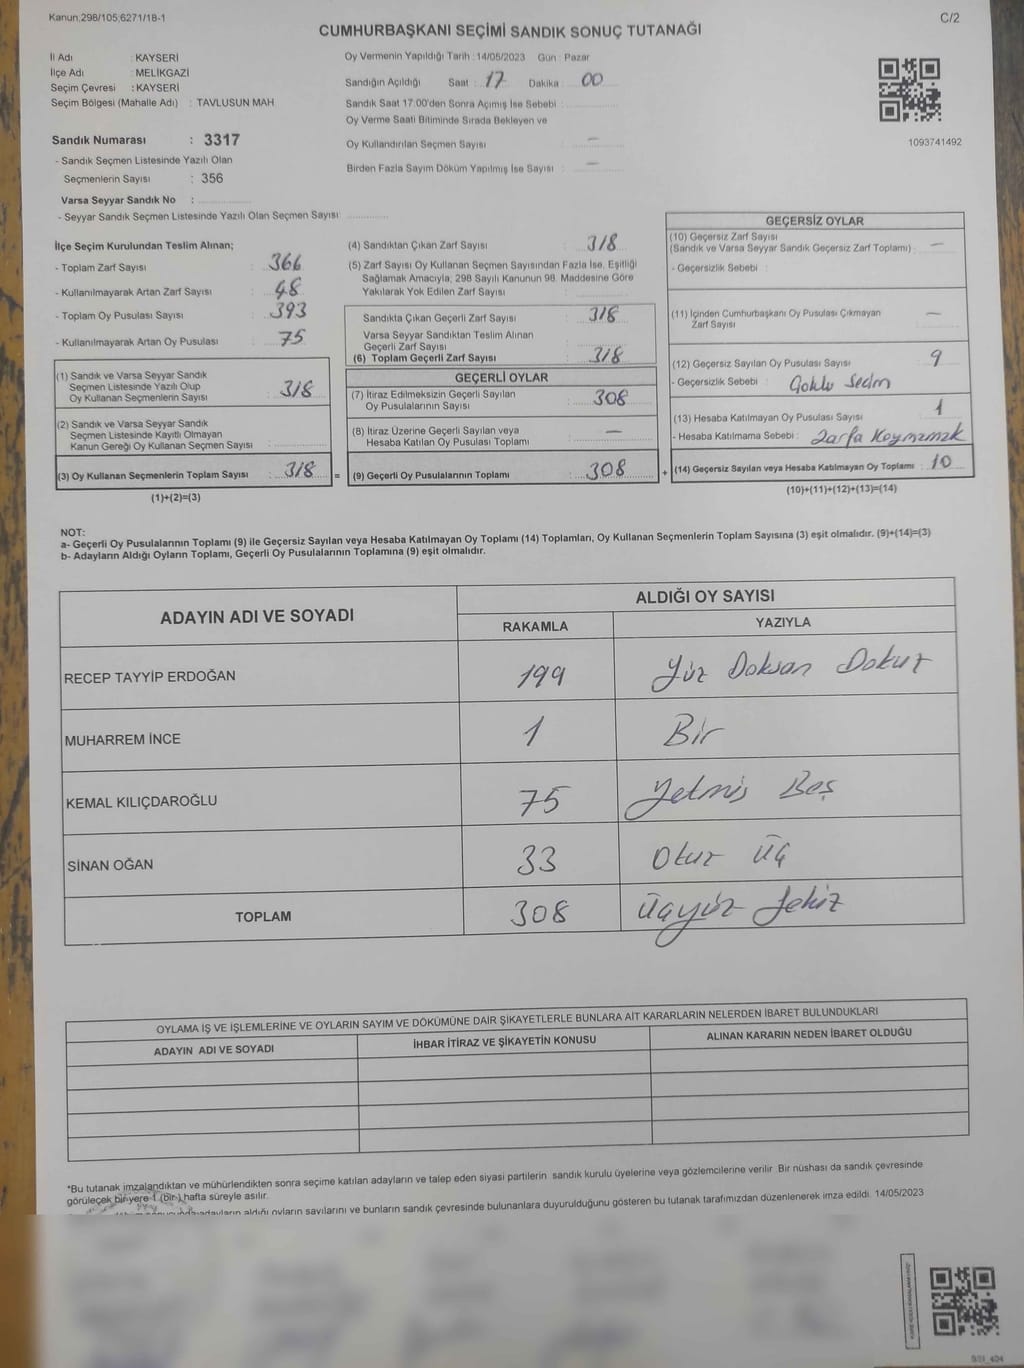 Kanun;298/105;6271/18-1
C/2
CUMHURBAŞKANI SEÇİMİ SANDIK SONUÇ TUTANAĞI
İl Adı : KAYSERİ
İlçe Adı : MELİKGAZİ
Seçim Çevresi : KAYSERİ
Seçim Bölgesi (Mahalle Adı) : TAVLUSUN MAH.
Oy Vermenin Yapıldığı Tarih : 14/05/2023 Gün : Pazar
Sandığın Açıldığı Saat : 17 Dakika : 00
Sandık Saat 17:00'den Sonra Açımış İse Sebebi :
Oy Verme Saati Bitiminde Sırada Bekleyen ve
Oy Kullandırılan Seçmen Sayısı : —
Birden Fazla Sayım Döküm Yapılmış İse Sayısı : —
1093741492
Sandık Numarası : 3317
- Sandık Seçmen Listesinde Yazılı Olan
Seçmenlerin Sayısı : 356
Varsa Seyyar Sandık No :
- Seyyar Sandık Seçmen Listesinde Yazılı Olan Seçmen Sayısı :
İlçe Seçim Kurulundan Teslim Alınan;
- Toplam Zarf Sayısı : 366
- Kullanılmayarak Artan Zarf Sayısı : 48
- Toplam Oy Pusulası Sayısı : 393
- Kullanılmayarak Artan Oy Pusulası : 75
(1) Sandık ve Varsa Seyyar Sandık
Seçmen Listesinde Yazılı Olup
Oy Kullanan Seçmenlerin Sayısı : 318
(2) Sandık ve Varsa Seyyar Sandık
Seçmen Listesinde Kayıtlı Olmayan
Kanun Gereği Oy Kullanan Seçmen Sayısı :
(3) Oy Kullanan Seçmenlerin Toplam Sayısı : 318 =
(1)+(2)=(3)
(4) Sandıktan Çıkan Zarf Sayısı : 318
(5) Zarf Sayısı Oy Kullanan Seçmen Sayısından Fazla İse, Eşitliği
Sağlamak Amacıyla, 298 Sayılı Kanunun 98. Maddesine Göre
Yakılarak Yok Edilen Zarf Sayısı :
Sandıkta Çıkan Geçerli Zarf Sayısı : 318
Varsa Seyyar Sandıktan Teslim Alınan
Geçerli Zarf Sayısı :
(6) Toplam Geçerli Zarf Sayısı : 318
GEÇERLİ OYLAR
(7) İtiraz Edilmeksizin Geçerli Sayılan
Oy Pusulalarının Sayısı : 308
(8) İtiraz Üzerine Geçerli Sayılan veya
Hesaba Katılan Oy Pusulası Toplamı : —
(9) Geçerli Oy Pusulalarının Toplamı : 308 +
GEÇERSİZ OYLAR
(10) Geçersiz Zarf Sayısı
(Sandık ve Varsa Seyyar Sandık Geçersiz Zarf Toplamı) : —
- Geçersizlik Sebebi :
(11) İçinden Cumhurbaşkanı Oy Pusulası Çıkmayan
Zarf Sayısı : —
(12) Geçersiz Sayılan Oy Pusulası Sayısı : 9
- Geçersizlik Sebebi : Çoklu Seçim
(13) Hesaba Katılmayan Oy Pusulası Sayısı : 1
- Hesaba Katılmama Sebebi : Zarfa Koymamak
(14) Geçersiz Sayılan veya Hesaba Katılmayan Oy Toplamı : 10
(10)+(11)+(12)+(13)=(14)
NOT:
a- Geçerli Oy Pusulalarının Toplamı (9) ile Geçersiz Sayılan veya Hesaba Katılmayan Oy Toplamı (14) Toplamları, Oy Kullanan Seçmenlerin Toplam Sayısına (3) eşit olmalıdır. (9)+(14)=(3)
b- Adayların Aldığı Oyların Toplamı, Geçerli Oy Pusulalarının Toplamına (9) eşit olmalıdır.
ADAYIN ADI VE SOYADI
ALDIĞI OY SAYISI
RAKAMLA YAZIYLA
RECEP TAYYİP ERDOĞAN 199 Yüz Doksan Dokuz
MUHARREM İNCE 1 Bir
KEMAL KILIÇDAROĞLU 75 Yetmiş Beş
SİNAN OĞAN 33 Otuz Üç
TOPLAM 308 Üçyüz Sekiz
OYLAMA İŞ VE İŞLEMLERİNE VE OYLARIN SAYIM VE DÖKÜMÜNE DAİR ŞİKAYETLERLE BUNLARA AİT KARARLARIN NELERDEN İBARET BULUNDUKLARI
ADAYIN ADI VE SOYADI İHBAR İTİRAZ VE ŞİKAYETİN KONUSU ALINAN KARARIN NEDEN İBARET OLDUĞU
*Bu tutanak imzalandıktan ve mühürlendikten sonra seçime katılan adayların ve talep eden siyasi partilerin sandık kurulu üyelerine veya gözlemcilerine verilir. Bir nüshası da sandık çevresinde
görülecek bir yere 1 (bir) hafta süreyle asılır.
adayların aldığı oyların sayılarını ve bunların sandık çevresinde bulunanlara duyurulduğunu gösteren bu tutanak tarafımızdan düzenlenerek imza edildi. 14/05/2023